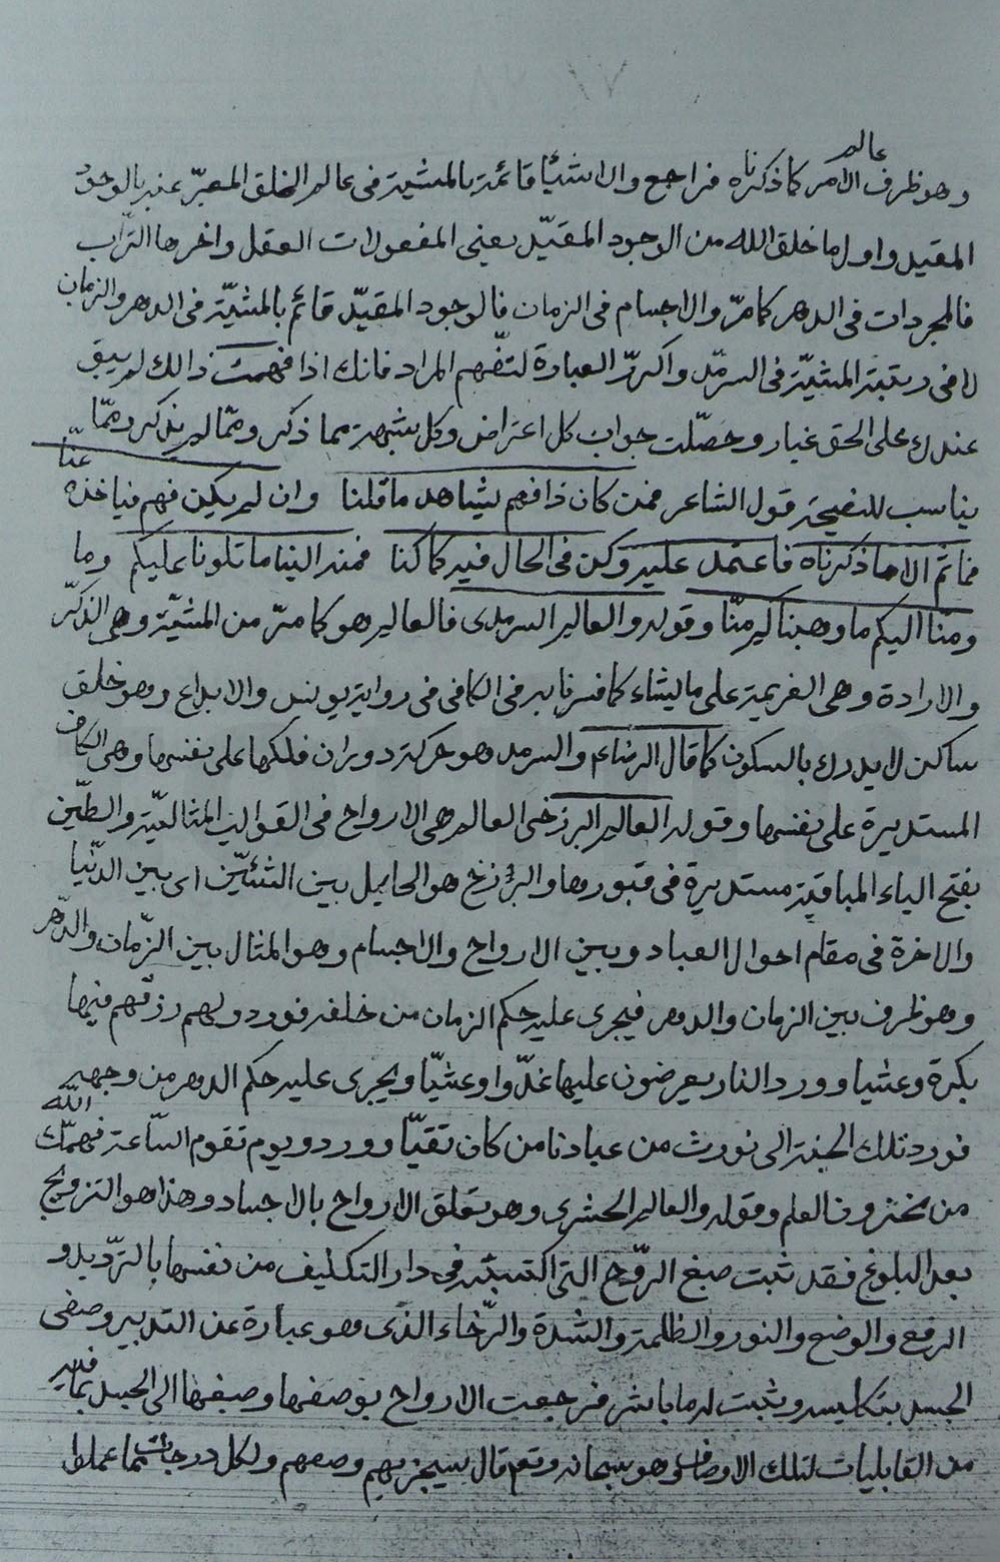 عالم
وهو ظرف الامر كما ذكرناه فراجع والاشيآء قائمة بالمشية فى عالم الخلق المعبّر عنه بالوجود
المقيد واول ما خلق الله من الوجود المقيّد يعنى المفعولات العقل واخرها التراب
فالمجردات فى الدهر كما مرّ والاجسام فى الزمان فالوجود المقيّد قائم بالمشيّة فى الدهر والزمان
لا فى رتبة المشيّة فى السرمد واكرّر العبارة لتفهم المراد فانك اذا فهمت ذالك لم يبق
عندك على الحق غبار وحصّلت جواب كل اعتراض وكل شبهة مما ذكر ومما لم يذكر ومّما
يناسب للنصيحة قول الشاعر فمن كان ذا فهم يشاهد ما قلنا وان لم يكن فهم فياخذه عنّا
فما ثم الا ما ذكرناه فاعتمد عليه وكن فى الحال فيه كما كنا فمنه الينا ما تلونا عليكم وما
ومنّا اليكم ما وهبناكم منّا وقوله والعالم السرمدى فالعالم هو كما مرّ من المشيّة وهى الذكر
والارادة وهى العزيمة على ما يشاء كما فسرنا به فى الكافى فى رواية يونس والابداع وهو خلق
ساكن لا يدرك بالسكون كما قال الرضاء والسرمد هو حركة دوران فلكها على نفسها وهى الكاف
المستديرة على نفسها وقوله العالم البرزخى العالم هى الارواح فى القوالب المثاليّة والطّين
بفتح الياء الباقية مستديرة فى قبورها والبرزخ هو الحايل بين الشيئين اى بين الدّنيا
والاخرة فى مقام احوال العباد وبين الارواح والاجسام وهو المثال بين الزّمان والدّهر
وهو ظرف بين الزمان والدهر فيجرى عليه حكم الزمان من خلفه فورد ولهم رزقهم فيها
بكرة وعشيا وورد النار يعرضون عليها غدّوا وعشيّا ويجرى عليه حكم الدهر من وجهه
فورد تلك الجنة التى نورث من عبادنا من كان تقيّا وورد ويوم تقوم السّاعة فهمّك الله
من مخزون العلم وقوله والعالم الحشرى وهو تعلق الارواح بالاجساد وهذا هو التزويج
بعد البلوغ فقد ثبت صبغ الرّوح التى اكتسبته فى دار التكليف من نفسها بالتّرديد و
الرفع والوضع والنور والظلمة والشدة والرّخاء الذى هو عبارة عن التدبير وصفى
الجسد بتكليسه وثبت له ما باشر فرجعت الارواح بوصفها وصبغها الى الجسد بما فيه
من القابليات لتلك الاوصاف وهو سبحانه وتعم قال سيجزيهم وصفهم ولكل درجات مما عملوا